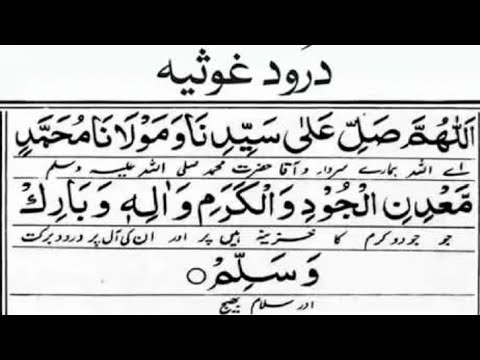 درود غوثیہ
اَللّٰهُمَّ صَلِّ عَلٰى سَيِّدِنَا وَمَوْلَانَا مُحَمَّدٍ
اے اللہ ہمارے سردار و آقا حضرت محمد صلی اللہ علیہ وسلم
مَّعْدِنِ الْجُوْدِ وَالْكَرَمِ وَاٰلِهٖ وَبَارِكْ
جو جود و کرم کا خزینہ ہیں پر اور ان کی آل پر درود برکت
وَسَلِّمْ ○
اور سلام بھیج